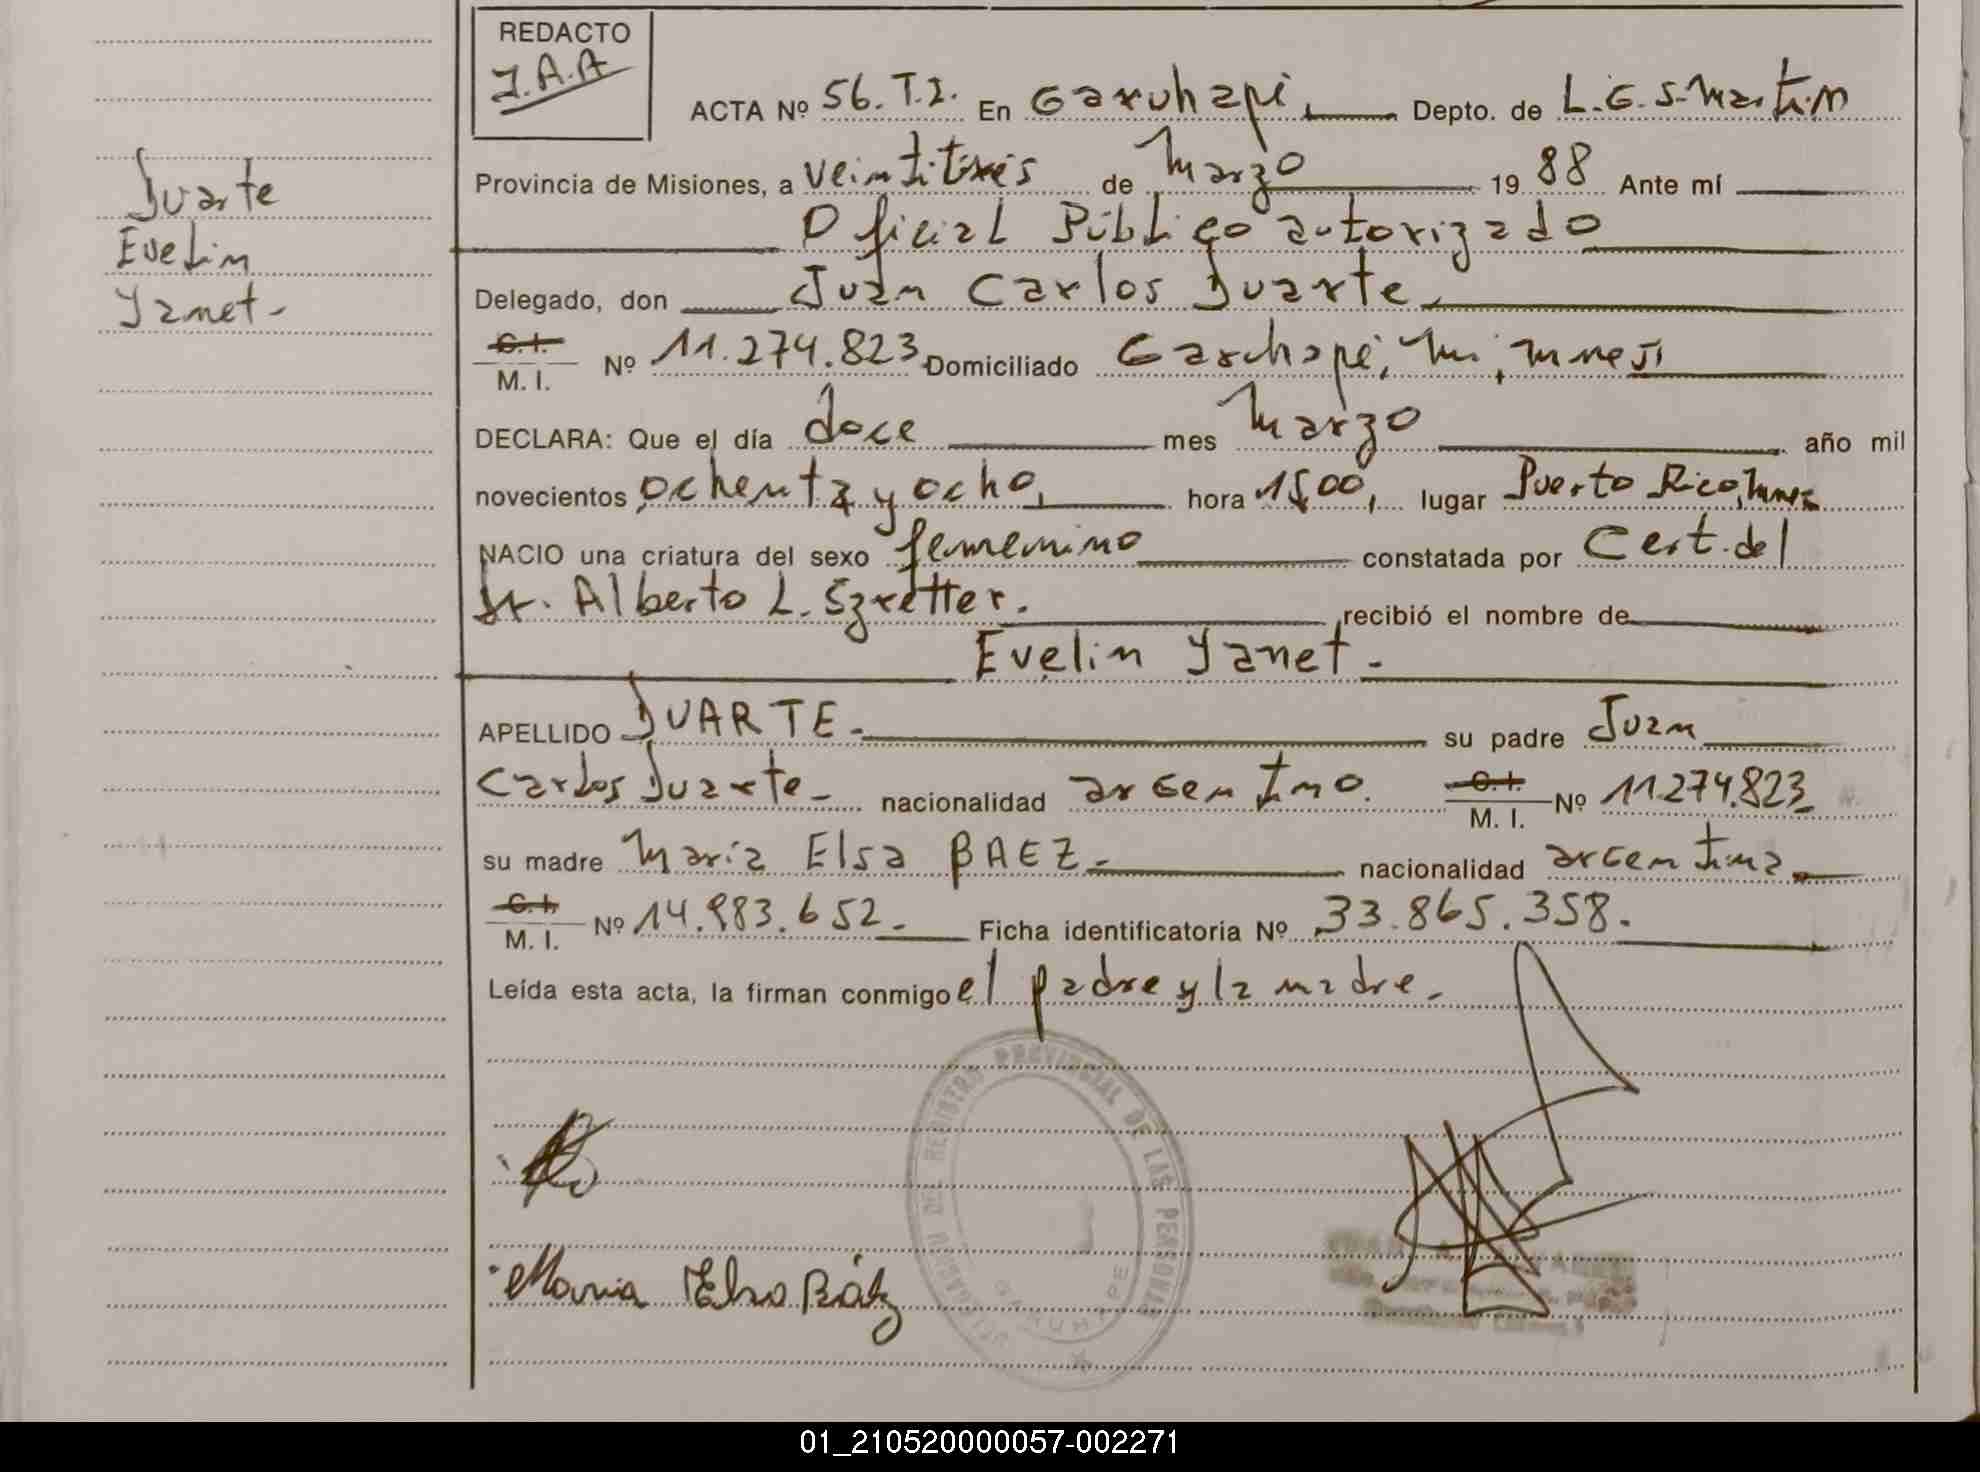 REDACTO
J.A.A
ACTA Nº 56. T.I. En Garuhapi, Depto. de L.G.S-Martin
Duarte
Evelin
Yanet-
Provincia de Misiones, a veintitres de Marzo 19 88 Ante mí
Oficial Público autorizado
Delegado, don Juan Carlos Duarte
C.I. M. I. Nº 11.274.823 Domiciliado Garhapé,
DECLARA: Que el día doce mes Marzo año mil
novecientos ochenta y ocho, hora 15,00, lugar Puerto Rico,
NACIO una criatura del sexo femenino constatada por Cert. del
Dr. Alberto L. Szretter. recibió el nombre de
Evelin Yanet-
APELLIDO DUARTE- su padre Juan
Carlos Duarte- nacionalidad argentino. C.I. M. I. Nº 11274.823
su madre Maria Elsa BAEZ- nacionalidad argentina
C.I. M. I. Nº 14.983.652- Ficha identificatoria Nº 33.865.358.
Leída esta acta, la firman conmigo el padre y la madre-
DELEGACION DEL REGISTRO PROVINCIAL DE LAS PERSONAS
GARUHAPE
Maria Elsa Báez
01_210520000057-002271